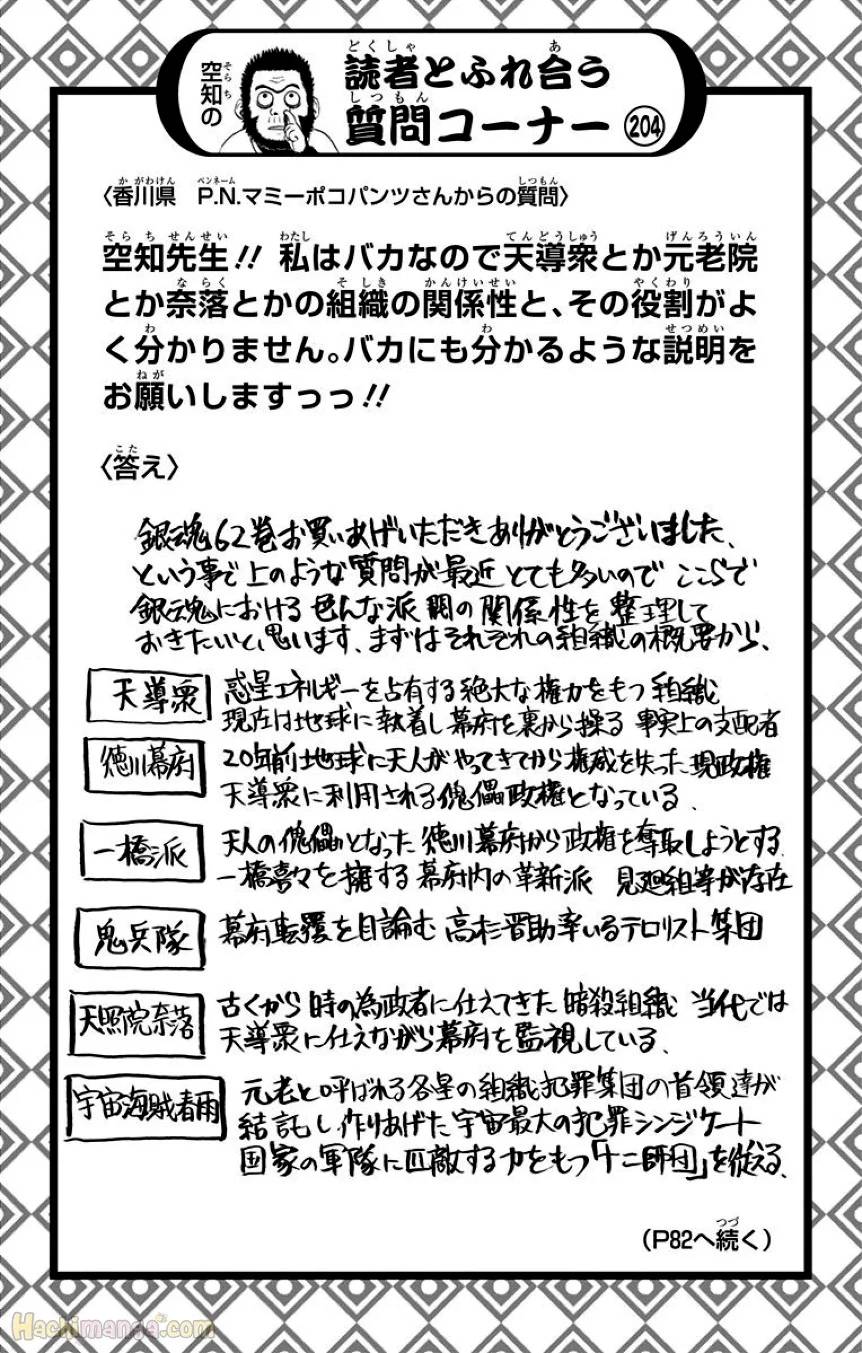 空知の
読者とふれ合う
質問コーナー 204
〈香川県 P.N.マミーポコパンツさんからの質問〉
空知先生!! 私はバカなので天導衆とか元老院
とか奈落とかの組織の関係性と、その役割がよ
く分かりません。バカにも分かるような説明を
お願いしますっっ!!
〈答え〉
銀魂62巻お買いあげいただきありがとうございました、
という事で上のような質問が最近とても多いのでここらで
銀魂における色んな派閥の関係性を整理して
おきたいと思います、まずはそれぞれの組織の概要から、
天導衆 惑星エネルギーを占有する絶大な権力をもつ組織
現在は地球に執着し幕府を裏から操る事実上の支配者
徳川幕府 20年前地球に天人がやってきてから権威を失った現政権
天導衆に利用される傀儡政権となっている、
一橋派 天人の傀儡となった徳川幕府から政権を奪取しようとする、
一橋喜々を擁する幕府内の革新派 見廻組等が存在
鬼兵隊 幕府転覆を目論む高杉晋助率いるテロリスト集団
天照院奈落 古くから時の為政者に仕えてきた暗殺組織 当代では
天導衆に仕えながら幕府を監視している、
宇宙海賊春雨 元老と呼ばれる各星の組織犯罪集団の首領達が
結託し作りあげた宇宙最大の犯罪シンジケート
国家の軍隊に匹敵する力をもつ「十二師団」を従える、
(P82へ続く)
Hachimanga.com